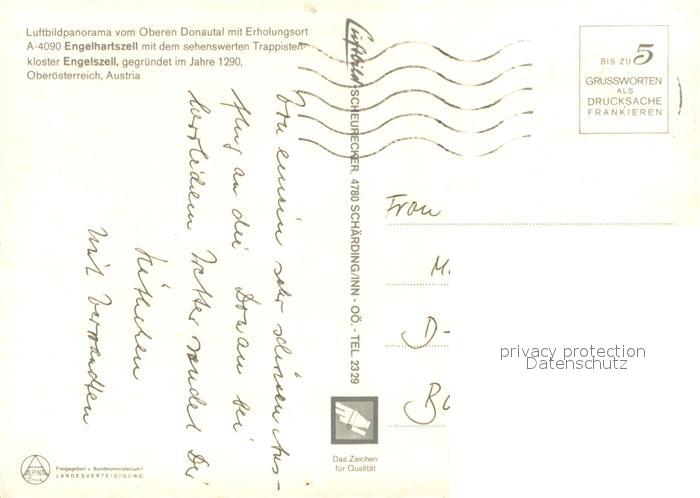 Luftbildpanorama vom Oberen Donautal mit Erholungsort
A-4090 Engelhartszell mit dem sehenswerten Trappisten-
kloster Engelszell, gegründet im Jahre 1290,
Oberösterreich, Austria
Von einem sehr schönen Aus-
flug an die Donau bei
herrlichem Wetter sendet Dir
Mit Verwandten
Luftbild-SCHEURECKER, 4780 SCHÄRDING/INN - OÖ. - TEL. 2329
BIS ZU 5
GRUSSWORTEN
ALS
DRUCKSACHE
FRANKIEREN
Frau
M
D-
privacy protection
Datenschutz
Das Zeichen
für Qualität
ALPINA
Druck
Freigegeben v. Bundesministerium f.
LANDESVERTEIDIGUNG